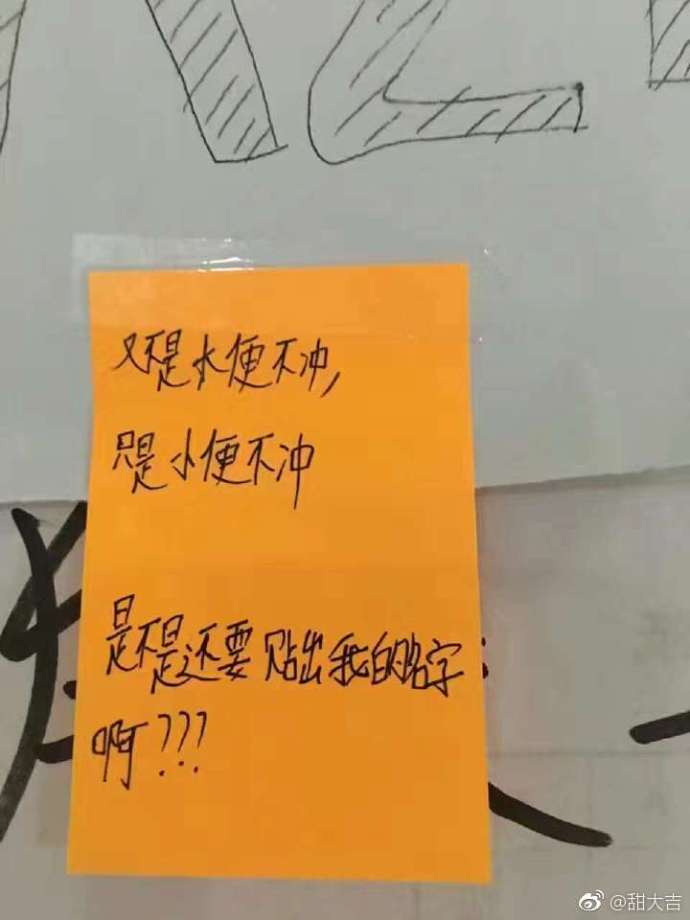 又不是大便不冲,
只是小便不冲
是不是还要贴出我的名字
啊???
@甜大吉